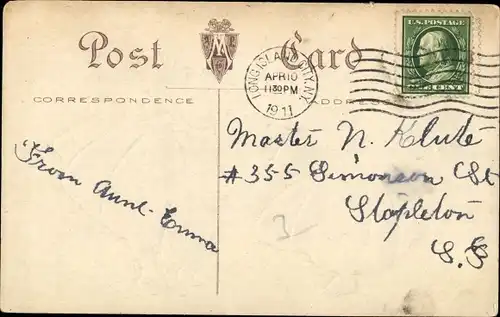 Post Card
LONG ISLAND CITY, N.Y.
APR 10
11 30 PM
1911
U.S. POSTAGE
ONE CENT
CORRESPONDENCE
ADDRESS
From Aunt Emma
Master N. Klute
#355 Simonson St
Stapleton
S. I.
3